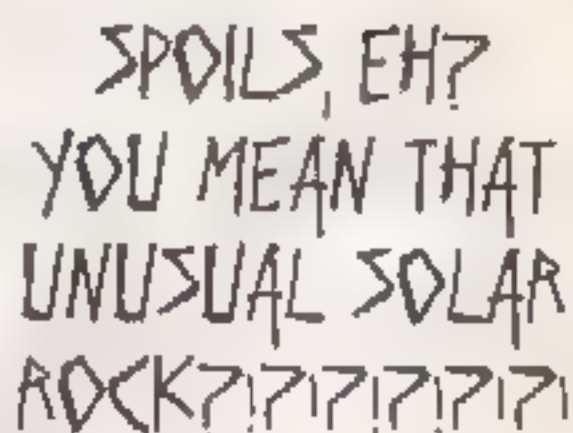 SPOILS, EH?
YOU MEAN THAT
UNUSUAL SOLAR
ROCK?!?!?!?!?!?!